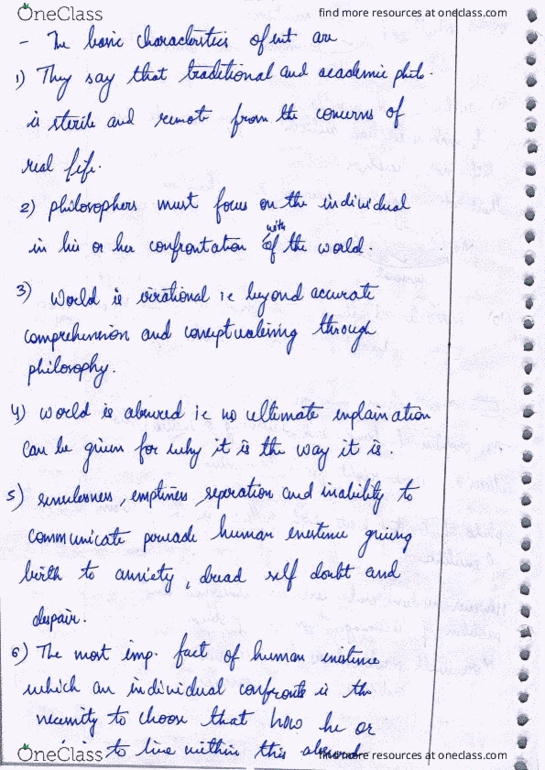 OneClass find more resources at oneclass.com
- The basic characteristics of ext are
1) They say that traditional and academic philo.
is sterile and remote from the concerns of
real life.
2) philosophers must focus on the individual
in his or her confrontation with the world.
3) World is irrational ie beyond accurate
comprehension and conceptualising through
philosophy.
4) World is absurd ie no ultimate explaination
can be given for why it is the way it is.
5) senselesness, emptiness, seperation and inability to
communicate pervade human existence giving
birth to anxiety, dread self doubt and
despair.
6) The most imp. fact of human existence
which an individual confronts is the
necessity to choose that how he or
to live within this absurd
OneClass find more resources at oneclass.com